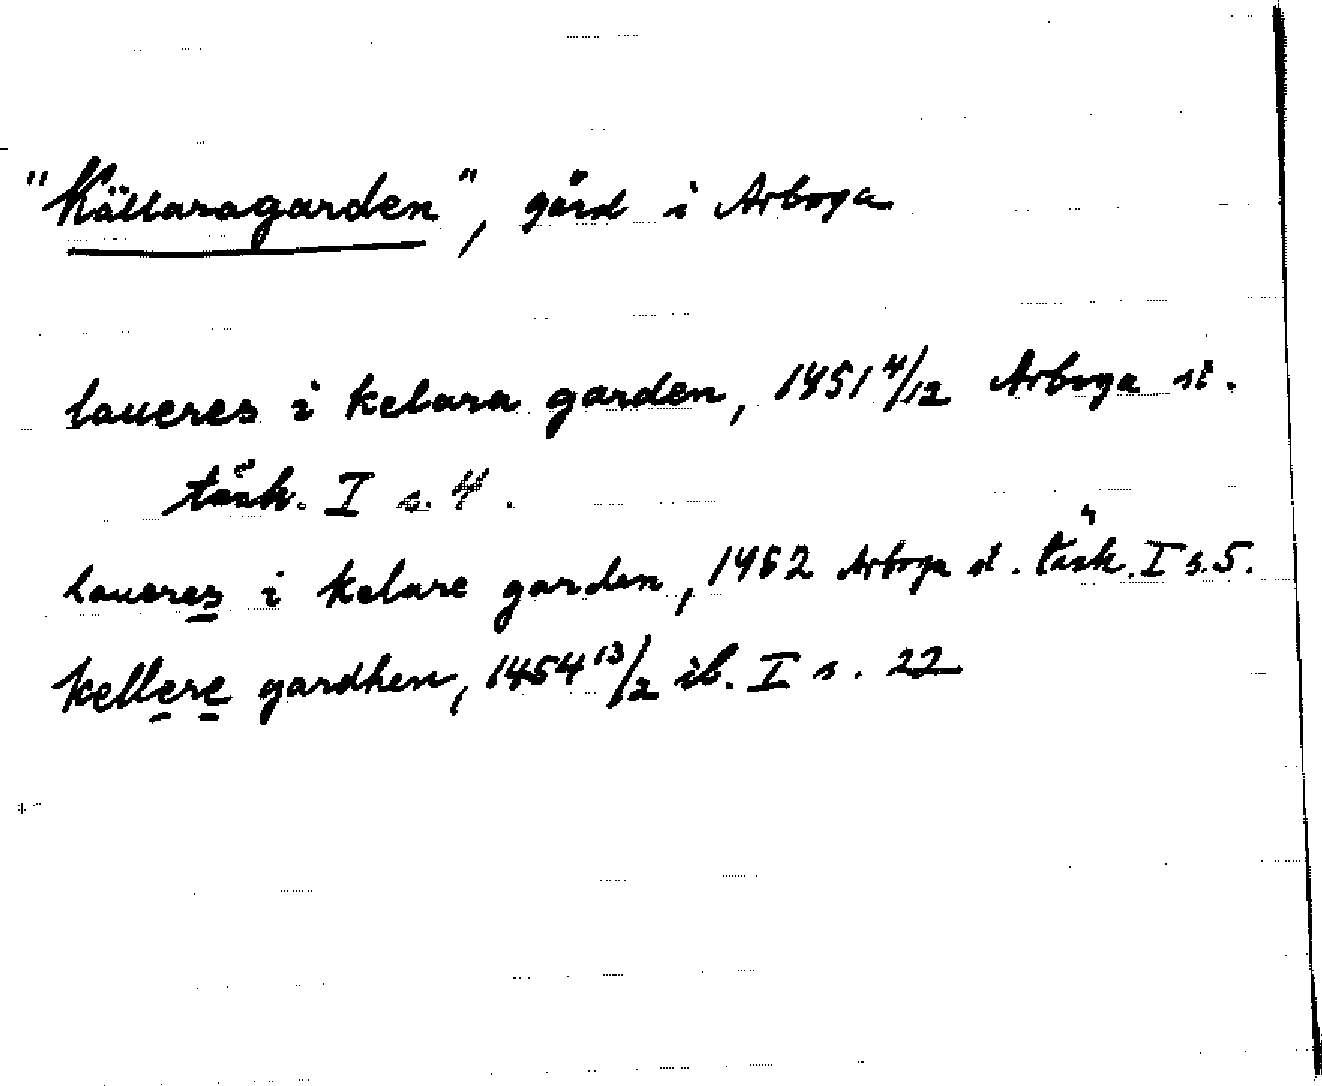 "Källaragarden", gård i Arboga
laueres i kelara garden, 1451 4/12 Arboga st.
tänk. I s. 4.
laueres i kelare garden, 1452 Arboga st. tänk. I s. 5.
kellere gardhen, 1454 13/2 ib. I s. 22